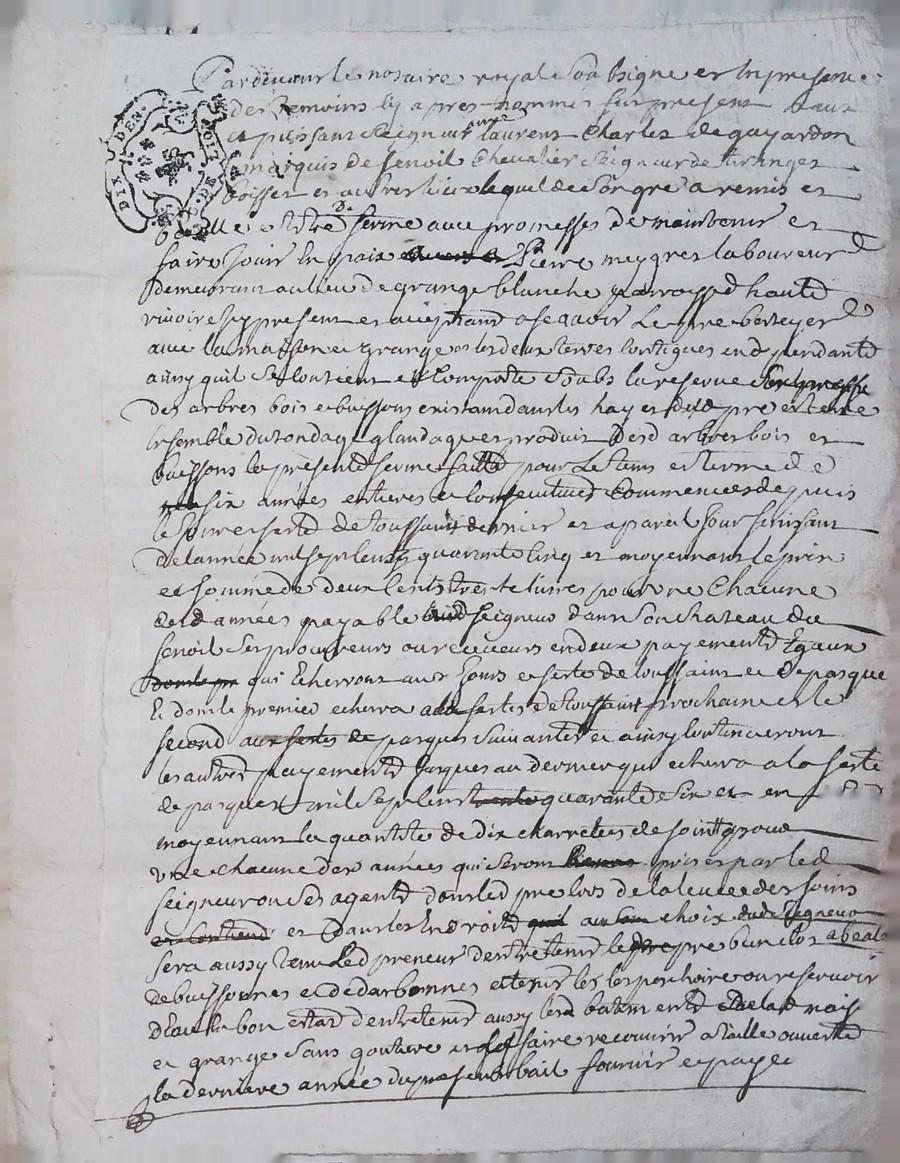 DIX DEN.
Par devant le notaire royal soubsigné et en presence
des temoins cy apres nommes fut present haut
et puissant Seigneur mre laurent Charles de gayardon
marquis de fenoil Chevalier Seigneur de tiranges
boisset et autres lieux lequel de son gré a remis et
a titre de ferme avec promesses de maintenir et
faire jouir en paix a Pierre meygret laboureur
demeurant au lieu de grange blanche parroisse d haute
rivoire icy present et acceptant a scavoir Le pre
avec la maison grange et les deux terres contigues en dependantd
ainsy quil se contient et comporte soubs la reserve
des arbres bois et buissons existant dans les hayes dud pre et terre
ensemble du tondage glandage et produit desd arbres bois et
buissons la presente ferme faitte pour Le tems et terme de
six années entieres et consecutives commencees depuis
le jour et feste de toussaint dernier et a pareil jour finissant
de lannee mil sept cents quarante cinq et moyennant le prix
et somme de deux cents trente livres pour une chacune
desd années payable aud seigneur dans son chateau du
fenoil ses procureurs ou receveurs en deux payementd Egaux
qui Echerront aux jours et festes de toussaint et de pasque
Et dont le premier echerra aux festes de toussaint prochaine et le
second aux festes de pasques suivantes et ainsy continueront
les autres payementd jusques au dernier qui echerra a la feste
de pasques mil sept cents quarante six et en
moyennant la quantité de dix charretées de foin
une chacune des années qui seront prises par led
seigneur ou ses agentd dans led pre lors de la levee des foins
et dans les Endroitd au choix dud Seigneur
sera aussy tenu Led preneur d entretenir le pre
de buissonnes et et tenir les ou reservoir
d'Eau En bon estat d'entretenir aussy lesd batimentd de lad mais
et grange sans goutiere et de faire recouvrir a taille ouverte
la derniere année du present bail fournir et payer